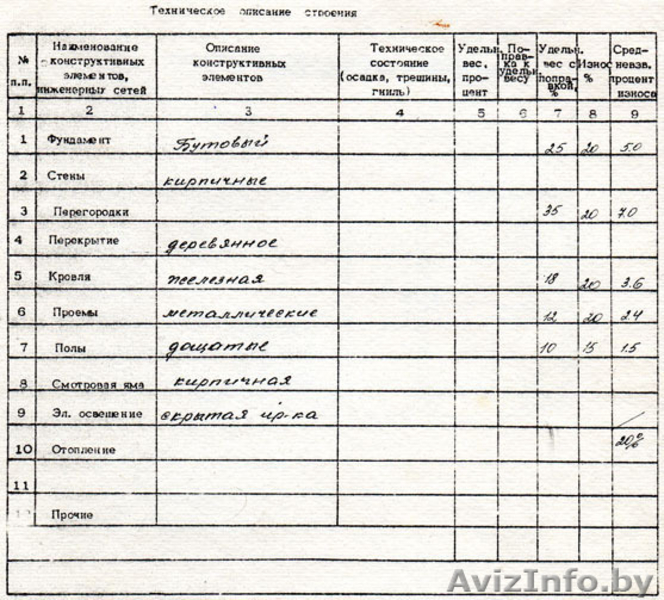 Техническое описание строения
№ п.п. Наименование конструктивных элементов, инженерных сетей Описание конструктивных элементов Техническое состояние (осадка, трещины, гниль) Удельн. вес, процент Поправка к удельн. весу Удельн. вес с поправкой, % Износ % Средневзв. процент износа
1 2 3 4 5 6 7 8 9
1 Фундамент Бутовый 25 20 5.0
2 Стены кирпичные
3 Перегородки 35 20 7.0
4 Перекрытие деревянное
5 Кровля железная 18 20 3.6
6 Проемы металлические 12 20 2.4
7 Полы дощатые 10 15 1.5
8 Смотровая яма кирпичная
9 Эл. освещение скрытая пр-ка
10 Отопление 20%
11
Прочие
AvizInfo.by